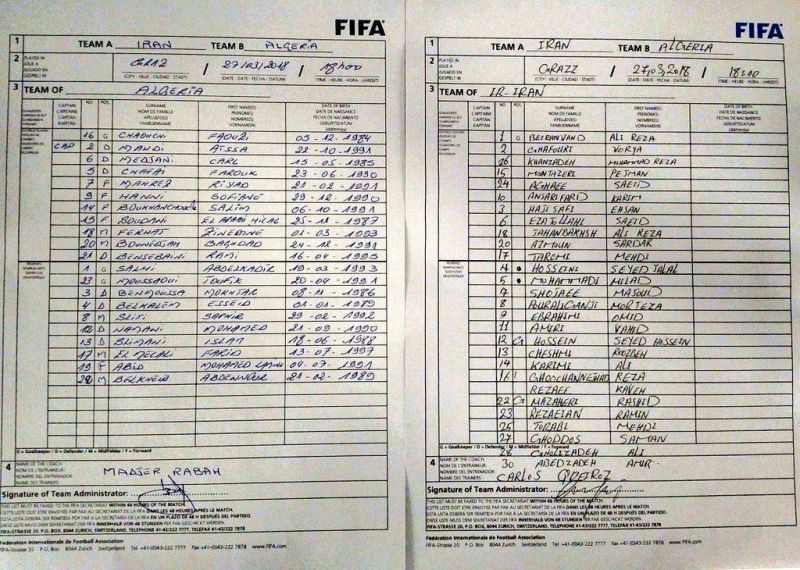 FIFA
1 TEAM A IRAN TEAM B ALGERIA
2 PLAYED IN GRAZ / 27/03/2018 / 18h00
JOUÉ À
JUGADO EN
GESPIELT IN
(CITY - VILLE - CIUDAD - STADT) (DATE - DATE - FECHA - DATUM) (TIME - HEURE - HORA - UHRZEIT)
3 TEAM OF ALGERIA
CAPTAIN NO. POS. SURNAME FIRST NAMES DATE OF BIRTH
CAPITAINE NOM DE FAMILLE PRÉNOMS DATE DE NAISSANCE
CAPITÁN APELLIDO(S) NOMBRE(S) FECHA DE NACIMIENTO
KAPITÄN NACHNAME VORNAME(N) GEBURTSDATUM
16 G CHAOUCHI FAOUZI 05-12-1984
CAP 2 D MANDI AISSA 22-10-1991
6 D MEDJANI CARL 15-05-1985
5 D CHAFAI FAROUK 23-06-1990
7 F MAHREZ RIYAD 21-02-1991
9 F HANNI SOFIANE 29-12-1990
14 F SALIM 06-10-1991
15 F SOUDANI EL ARABI HILAL 25-11-1987
18 M FERHAT ZINEDINE 01-03-1993
20 M BOUNEDJAH BAGHDAD 24-12-1991
21 D BENSEBAINI RAMI 16-04-1995
1 G SALHI ABDELKADIR 19-03-1993
23 G MOUSSAOUI TOUFIK 20-04-1991
3 D BENMOUSSA MOKHTAR 08-11-1986
4 D BELKALEM ESSEID 01-01-1989
8 M SLITI SOPHIR 29-02-1992
12 D NAMANI MOHAMED 21-09-1990
13 D SLIMANI ISLAM 18-06-1988
17 M EL MELALI FARID 13-07-1997
19 F ABID MOHAMED LAMINE 04-07-1991
22 M BELKHEIR ABDENNOUR 21-02-1989
G = Goalkeeper / D = Defender / M = Midfielder / F = Forward
4 NAME OF THE COACH MADJER RABAH
NOM DE L'ENTRAÎNEUR
NOMBRE DEL ENTRENADOR
NAME DES TRAINERS
Signature of Team Administrator:
THIS LIST MUST BE FAXED TO THE FIFA SECRETARIAT WITHIN 48 HOURS OF THE MATCH.
CETTE LISTE DOIT ÊTRE ENVOYÉE PAR FAX AU SECRÉTARIAT DE LA FIFA DANS LES 48 HEURES APRÈS LE MATCH.
ESTA LISTA DEBERÁ SER REMITIDA POR FAX A LA SECRETARÍA DE LA FIFA EN UN PLAZO DE 48 H DESPUÉS DEL PARTIDO.
DIESE LISTE MUSS DEM SEKRETARIAT DER FIFA INNERHALB VON 48 STUNDEN PER FAX GESCHICKT WERDEN.
ADDRESS: P.O. BOX, 8044 ZURICH, SWITZERLAND, TELEPHONE 41-43/222 7777, TELEFAX 41-43/222 7878
Fédération Internationale de Football Association
FIFA-Strasse 20 P.O. Box 8044 Zurich Switzerland Tel +41-(0)43-222 7777 Fax +41-(0)43-222 7878 www.FIFA.com
FIFA
1 TEAM A IRAN TEAM B ALGERIA
2 PLAYED IN GRAZZ / 27,03,2018 / 18:00
JOUÉ À
JUGADO EN
GESPIELT IN
(CITY - VILLE - CIUDAD - STADT) (DATE - DATE - FECHA - DATUM) (TIME - HEURE - HORA - UHRZEIT)
3 TEAM OF IR-IRAN
CAPTAIN NO. POS. SURNAME FIRST NAMES DATE OF BIRTH
CAPITAINE NOM DE FAMILLE PRÉNOMS DATE DE NAISSANCE
CAPITÁN APELLIDO(S) NOMBRE(S) FECHA DE NACIMIENTO
KAPITÄN NACHNAME VORNAME(N) GEBURTSDATUM
1 G BEIRANVAND ALI REZA
2 GHAFOURI VORYA
26 KHANZADEH MOHAMMAD REZA
15 MONTAZERI PEJMAN
24 AGHAEE SAEID
10 ANSARIFARD KARIM
3 HAJI SAFI EHSAN
6 EZATOLAHI SAEID
18 JAHANBAKHSH ALI REZA
20 AZMOUN SARDAR
17 TAREMI MEHDI
4 HOSSEINI SEYED JALAL
5 MOHAMMADI MILAD
7 SHOJAEE MASOUD
8 POURALIGANJI MORTEZA
9 EBRAHIMI OMID
11 AMIRI VAHID
12 G HOSSEIN SEYED HOSSEIN
13 CHESHMI ROOZBEH
14 KARIMI ALI
16 GHOOCHANNEJHAD REZA
REZAEE KAVEH
22 G MAZAHERI RASHID
23 REZAEIAN RAMIN
25 TORABI MEHDI
27 GHODDOS SAMAN
28 GHOLIZADEH ALI
G = Goalkeeper / D = Defender / M = Midfielder / F = Forward
4 NAME OF THE COACH 30 ABEDZADEH AMIR
NOM DE L'ENTRAÎNEUR
NOMBRE DEL ENTRENADOR
NAME DES TRAINERS CARLOS QUEIROZ
Signature of Team Administrator:
THIS LIST MUST BE FAXED TO THE FIFA SECRETARIAT WITHIN 48 HOURS OF THE MATCH.
CETTE LISTE DOIT ÊTRE ENVOYÉE PAR FAX AU SECRÉTARIAT DE LA FIFA DANS LES 48 HEURES APRÈS LE MATCH.
ESTA LISTA DEBERÁ SER REMITIDA POR FAX A LA SECRETARÍA DE LA FIFA EN UN PLAZO DE 48 H DESPUÉS DEL PARTIDO.
DIESE LISTE MUSS DEM SEKRETARIAT DER FIFA INNERHALB VON 48 STUNDEN PER FAX GESCHICKT WERDEN.
ADDRESS: P.O. BOX, 8044 ZURICH, SWITZERLAND, TELEPHONE 41-43/222 7777, TELEFAX 41-43/222 7878
Fédération Internationale de Football Association
FIFA-Strasse 20 P.O. Box 8044 Zurich Switzerland Tel +41-(0)43-222 7777 Fax +41-(0)43-222 7878 www.FIFA.com